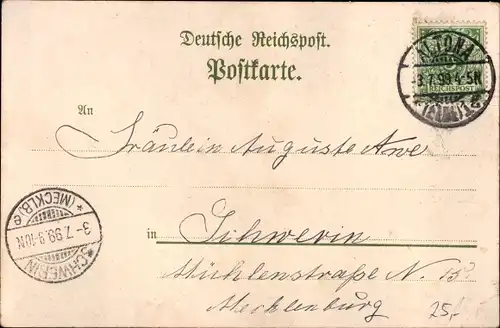 Deutsche Reichspost.
Postkarte.
ALTONA
3.7.99.4-5N
REICHSPOST
An
Fräulein Auguste Awe
(MECKLB) e
3-7.99.9-10N
SCHWERIN
in Schwerin
Mühlenstraße N.
Mecklenburg
25,-